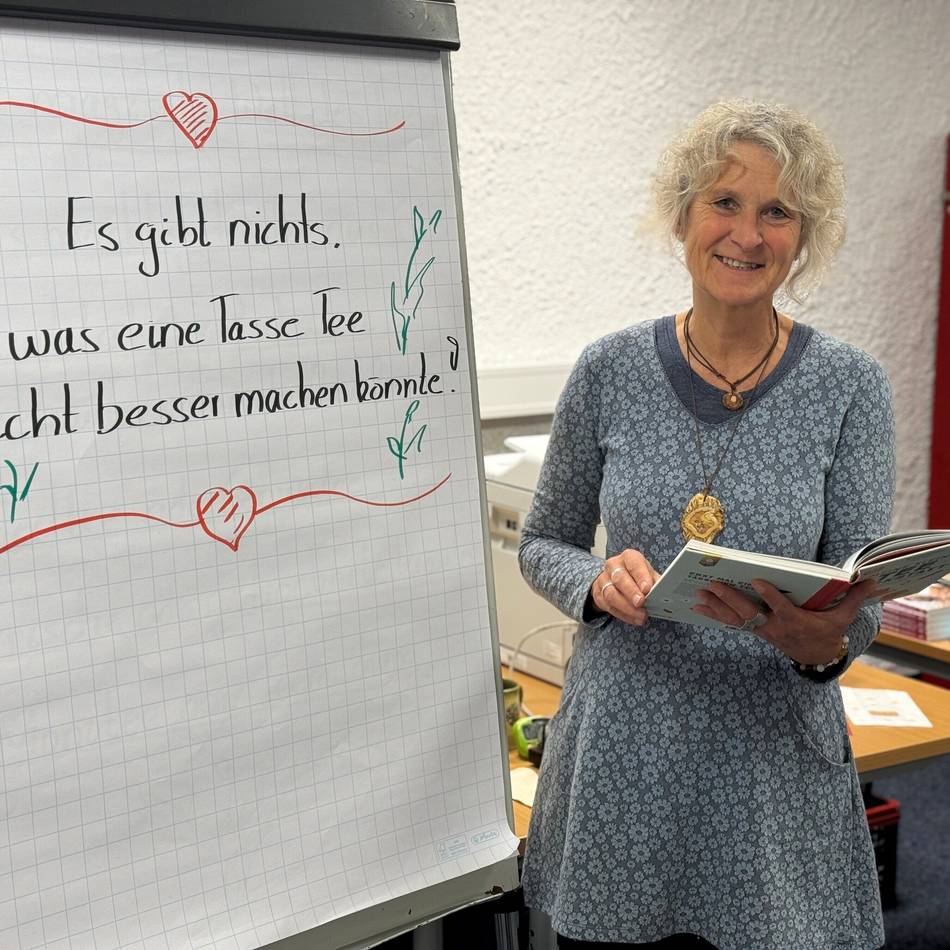 Es gibt nichts.
was eine Tasse Tee
cht besser machen könnte!